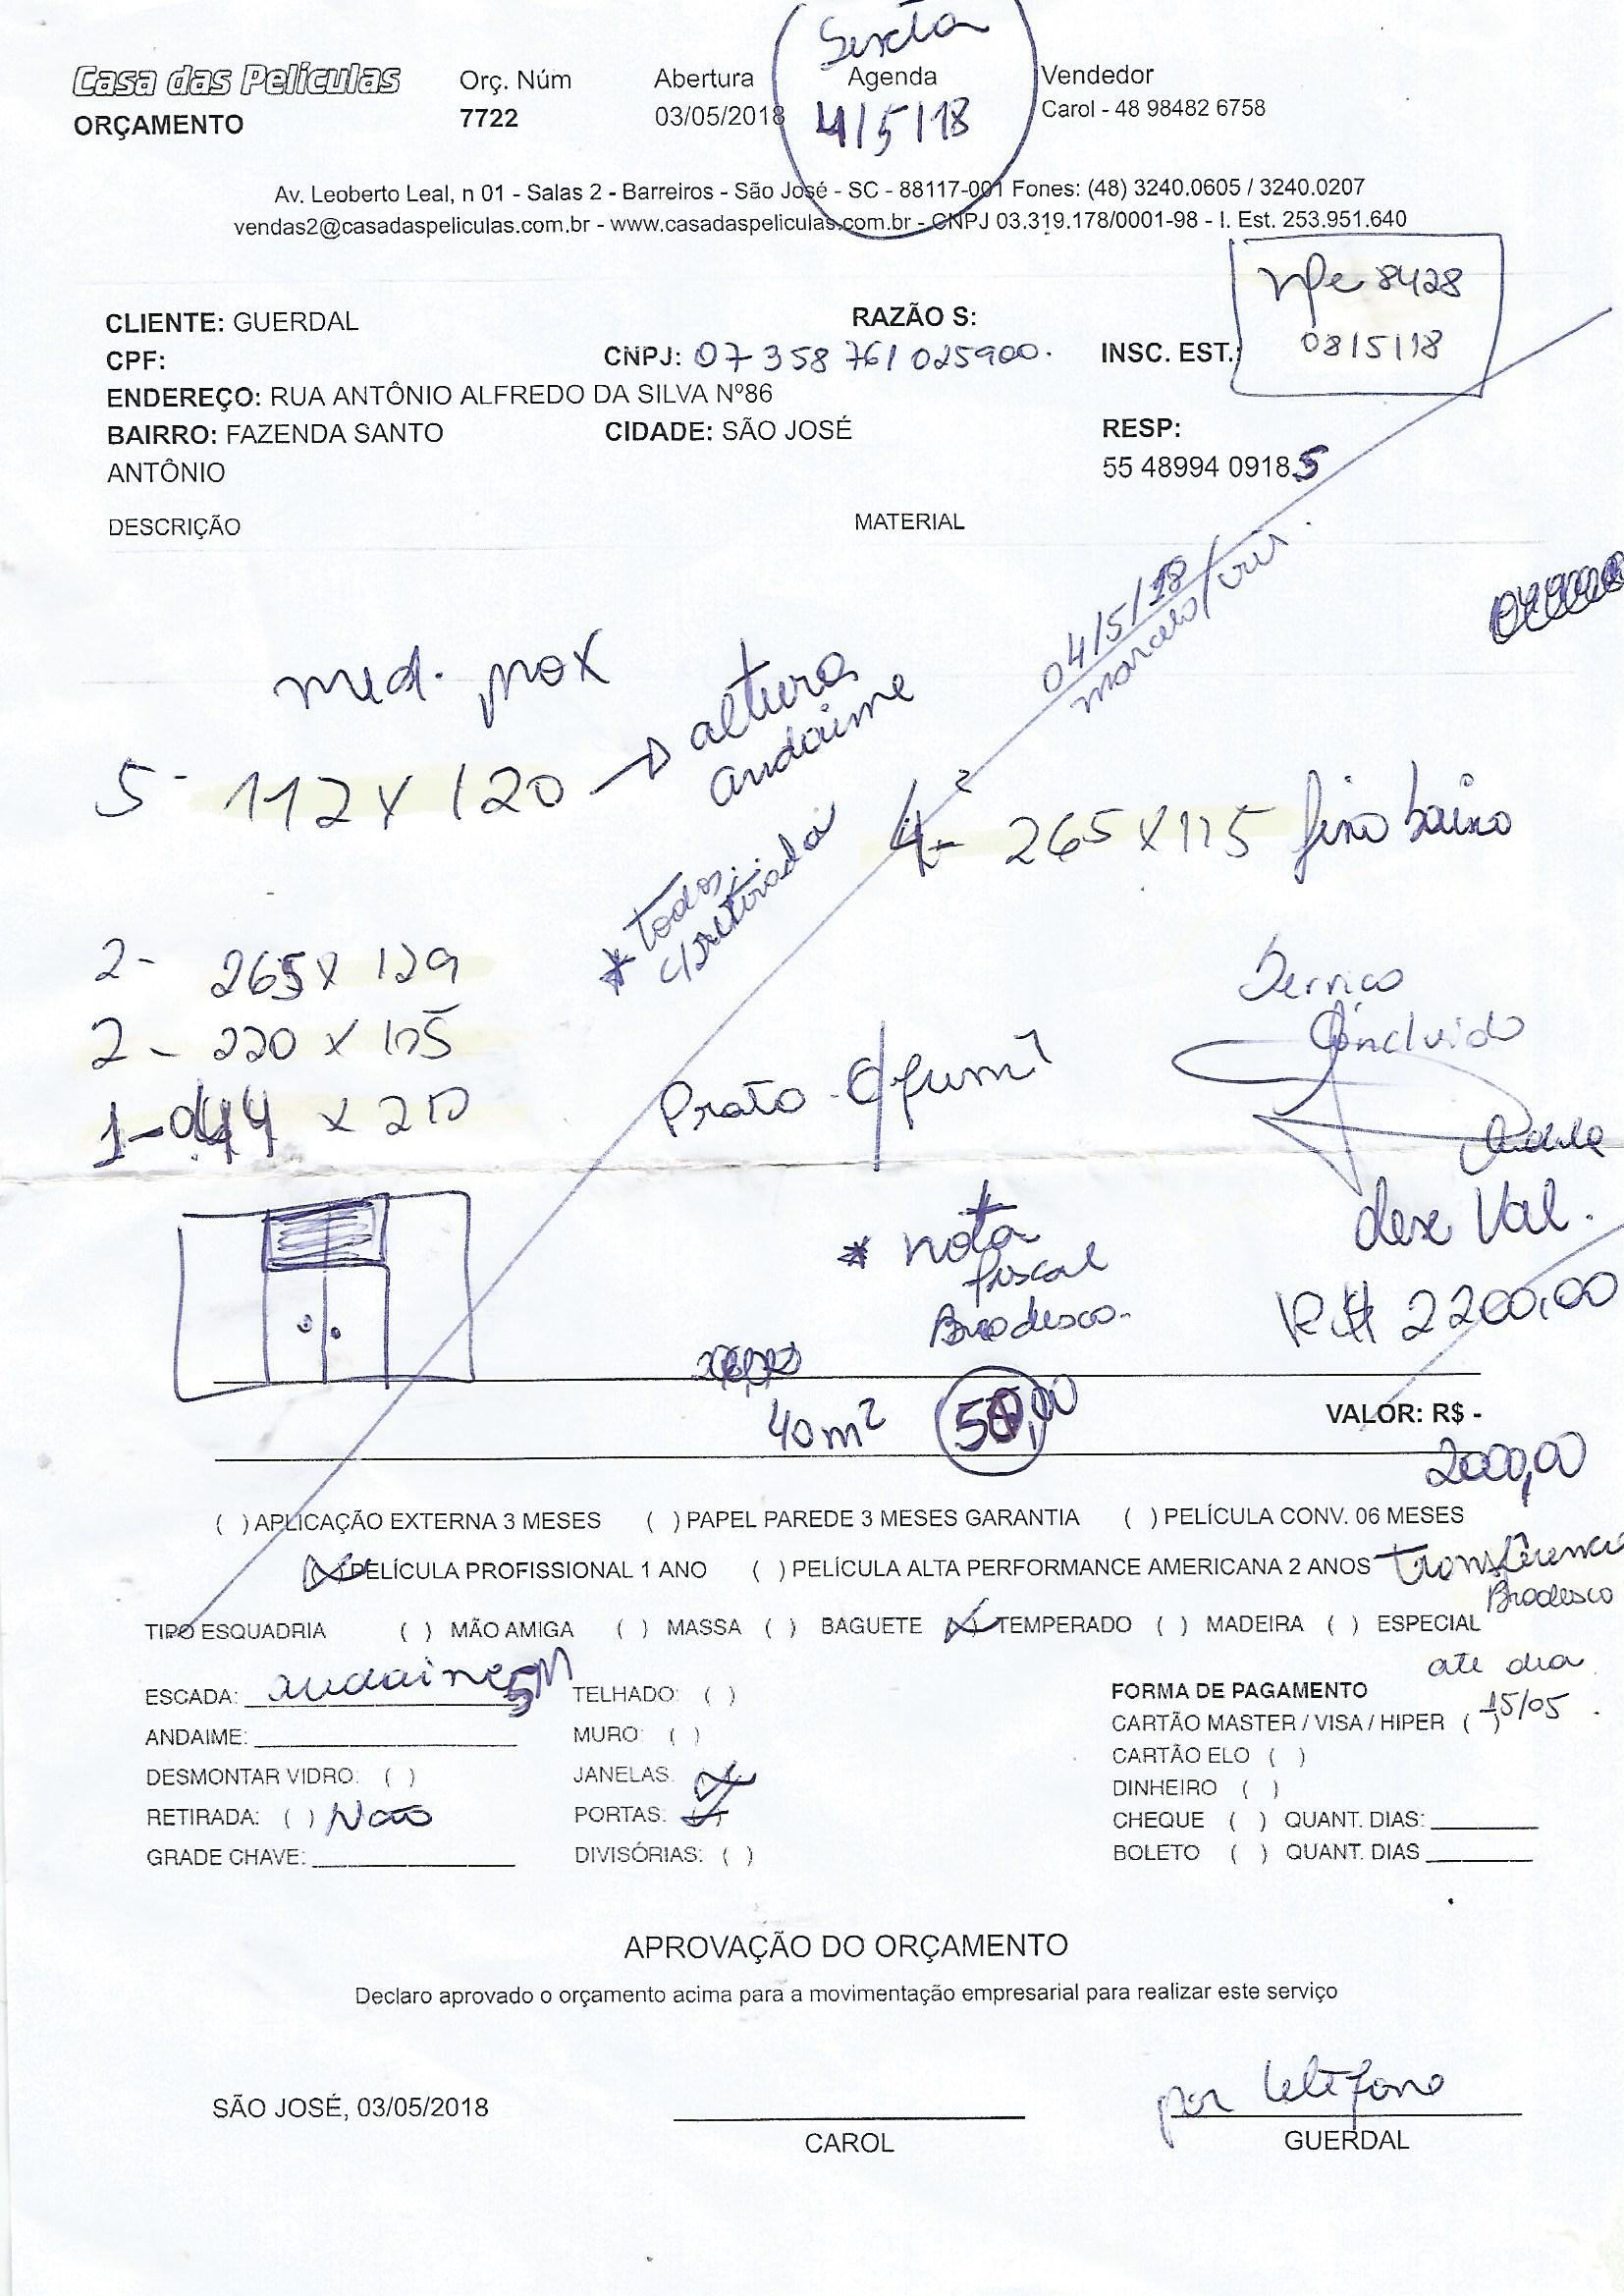 Sexta
Casa das Películas Orç. Núm Abertura Agenda Vendedor
ORÇAMENTO 7722 03/05/2018 4/5/18 Carol - 48 98482 6758
Av. Leoberto Leal, n 01 - Salas 2 - Barreiros - São José - SC - 88117-001 Fones: (48) 3240.0605 / 3240.0207
vendas2@casadaspeliculas.com.br - www.casadaspeliculas.com.br - CNPJ 03.319.178/0001-98 - I. Est. 253.951.640
nfe 8428
08/5/18
CLIENTE: GUERDAL RAZÃO S:
CPF: CNPJ: 07 358 761 025900. INSC. EST.:
ENDEREÇO: RUA ANTÔNIO ALFREDO DA SILVA Nº86
BAIRRO: FAZENDA SANTO CIDADE: SÃO JOSÉ RESP:
ANTÔNIO 55 48994 09185
DESCRIÇÃO MATERIAL
04/5/18
marcelo/
med. prox
altura
andaime
5- 112 x 120
4- 265 x 115 fixo baixo
* todos
c/retirada
2- 265 x 129
2- 220 x 115
1- 044 x 210
Serviço
Concluido
Prata
* nota
fiscal
Bradesco.
Val.
R$ 2200,00
40m² 50,00 VALOR: R$ -
2000,00
( ) APLICAÇÃO EXTERNA 3 MESES ( ) PAPEL PAREDE 3 MESES GARANTIA ( ) PELÍCULA CONV. 06 MESES
(X) PELÍCULA PROFISSIONAL 1 ANO ( ) PELÍCULA ALTA PERFORMANCE AMERICANA 2 ANOS transferencia
Bradesco
TIPO ESQUADRIA ( ) MÃO AMIGA ( ) MASSA ( ) BAGUETE (X) TEMPERADO ( ) MADEIRA ( ) ESPECIAL
até dia
15/05
ESCADA: andaime 5M TELHADO: ( ) FORMA DE PAGAMENTO
ANDAIME: MURO: ( ) CARTÃO MASTER / VISA / HIPER ( )
DESMONTAR VIDRO: ( ) JANELAS: (X) CARTÃO ELO ( )
RETIRADA: ( ) Não PORTAS: (X) DINHEIRO ( )
GRADE CHAVE: DIVISÓRIAS: ( ) CHEQUE ( ) QUANT. DIAS:
BOLETO ( ) QUANT. DIAS
APROVAÇÃO DO ORÇAMENTO
Declaro aprovado o orçamento acima para a movimentação empresarial para realizar este serviço
por telefone
SÃO JOSÉ, 03/05/2018
CAROL GUERDAL